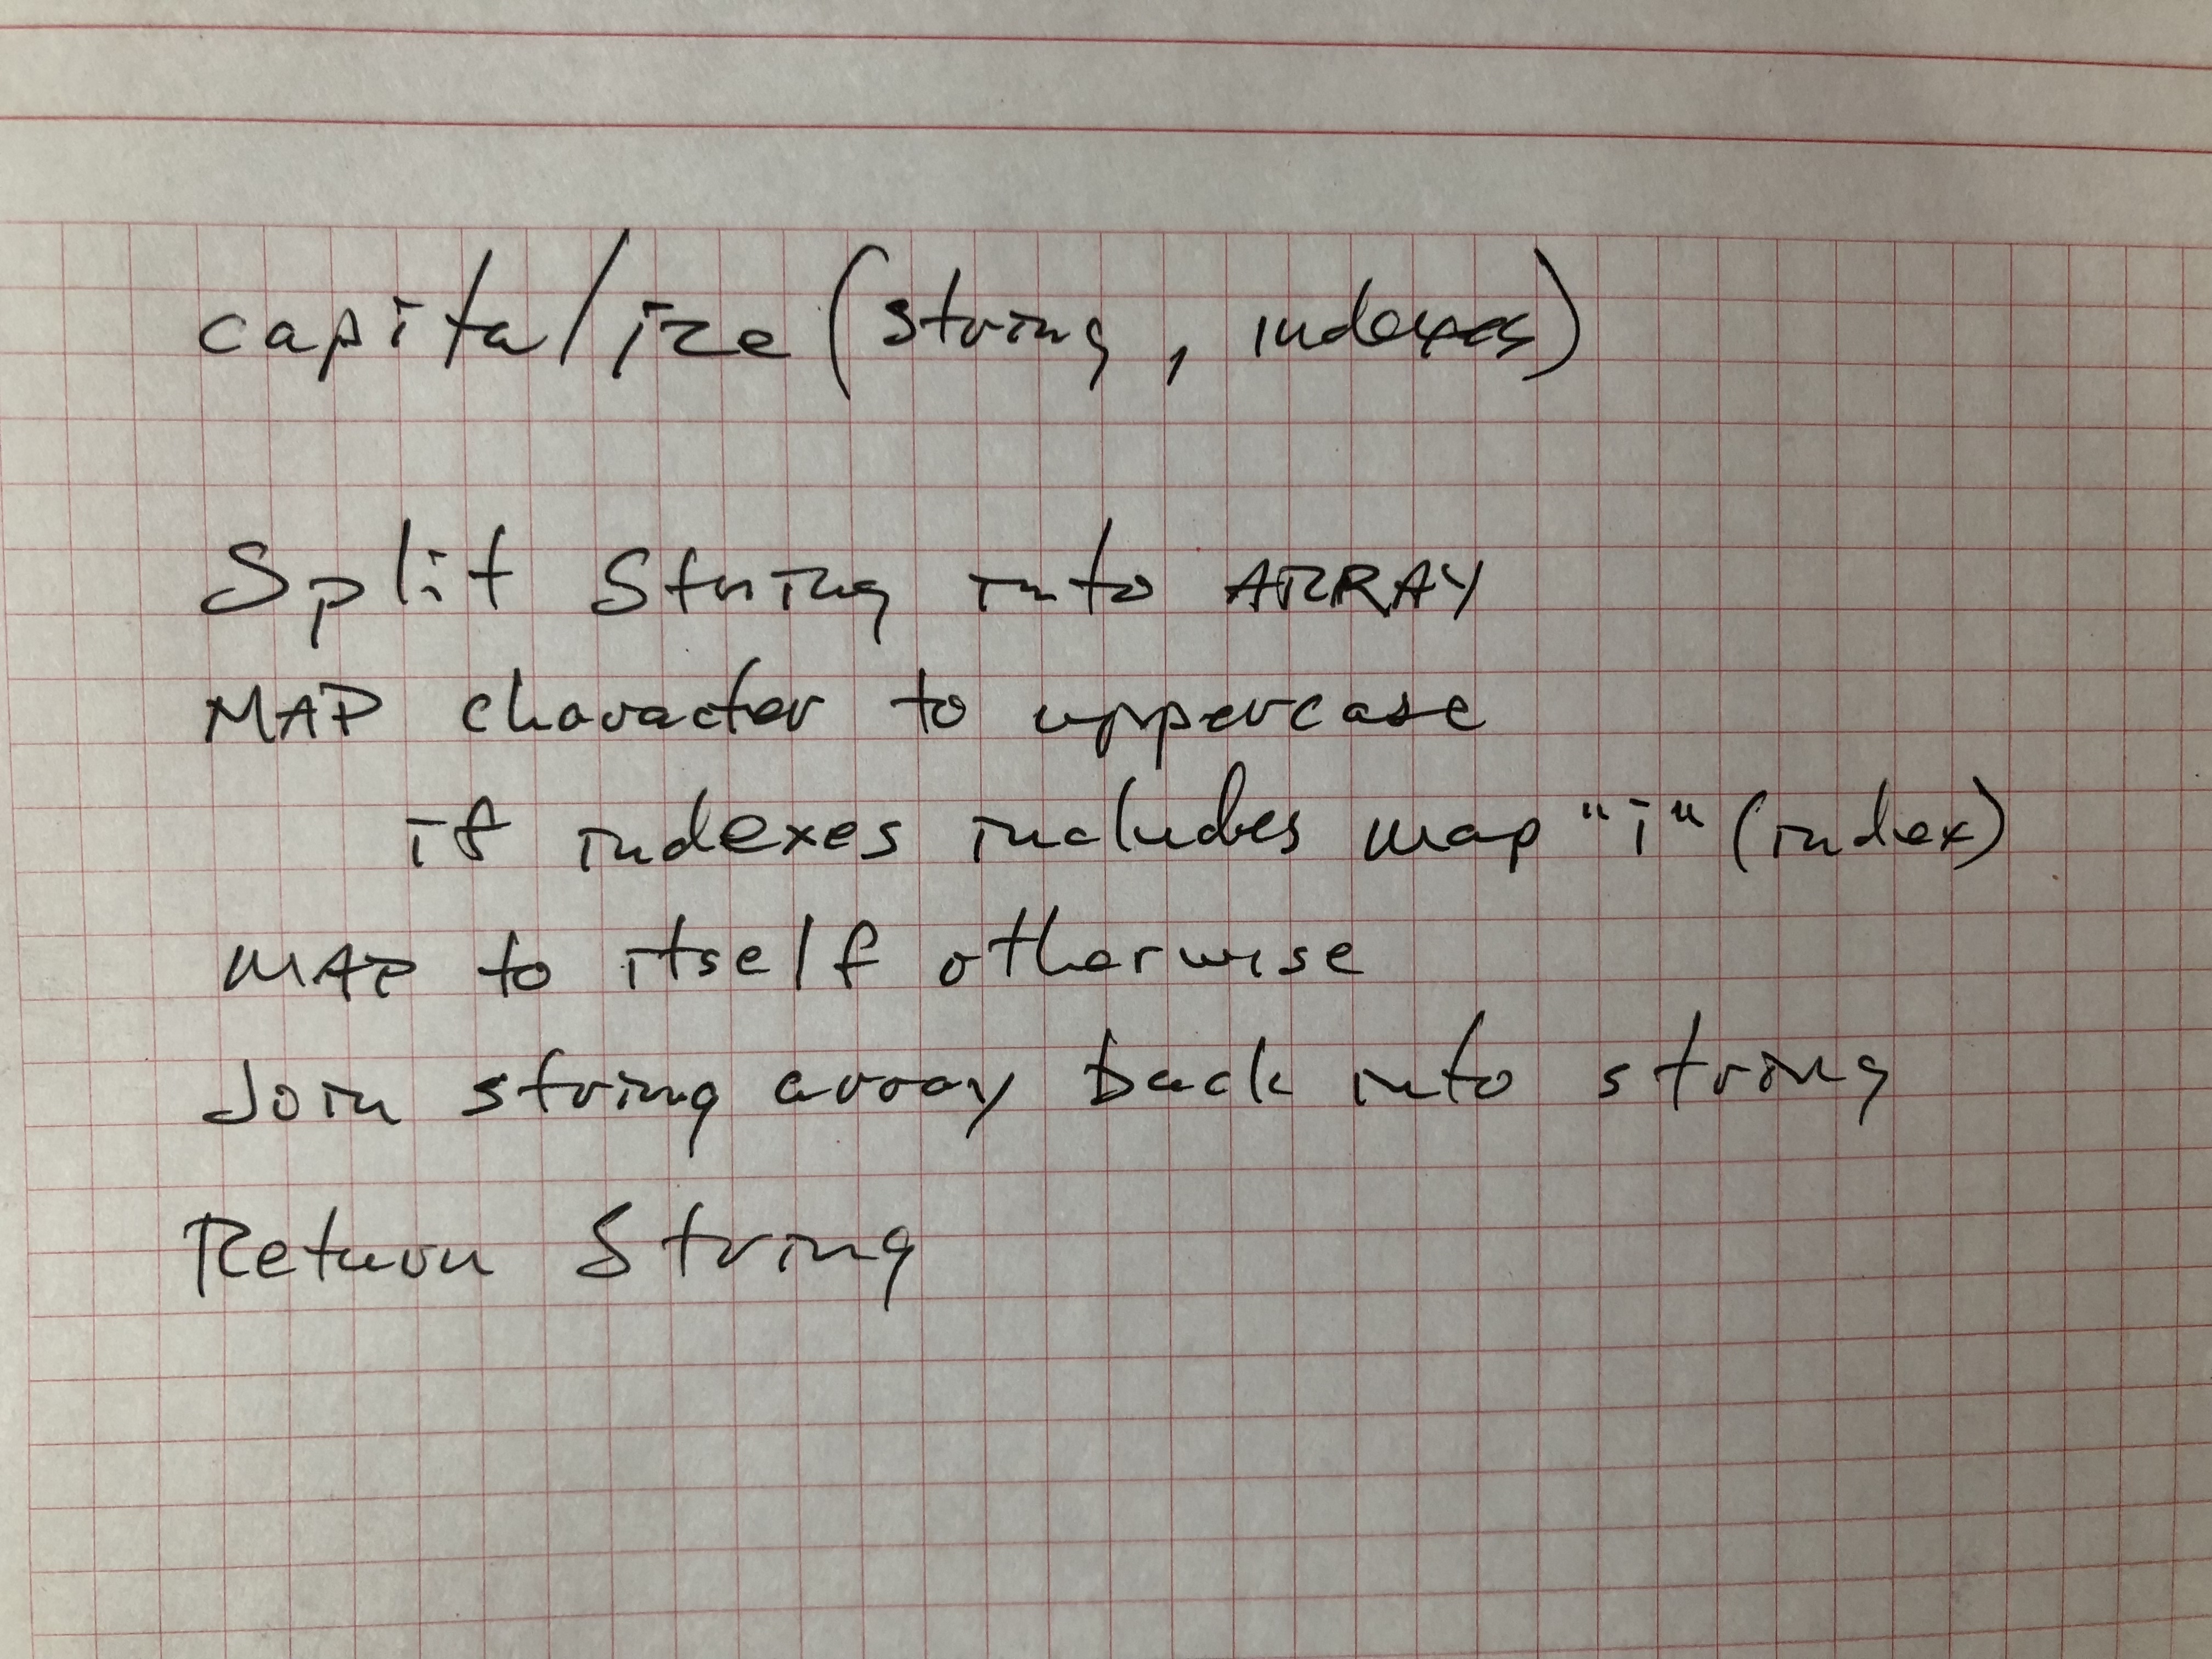 capitalize (string, indexes)
Split String into ARRAY
MAP character to uppercase
if indexes includes map "i" (index)
MAP to itself otherwise
Join string array back into string
Return String